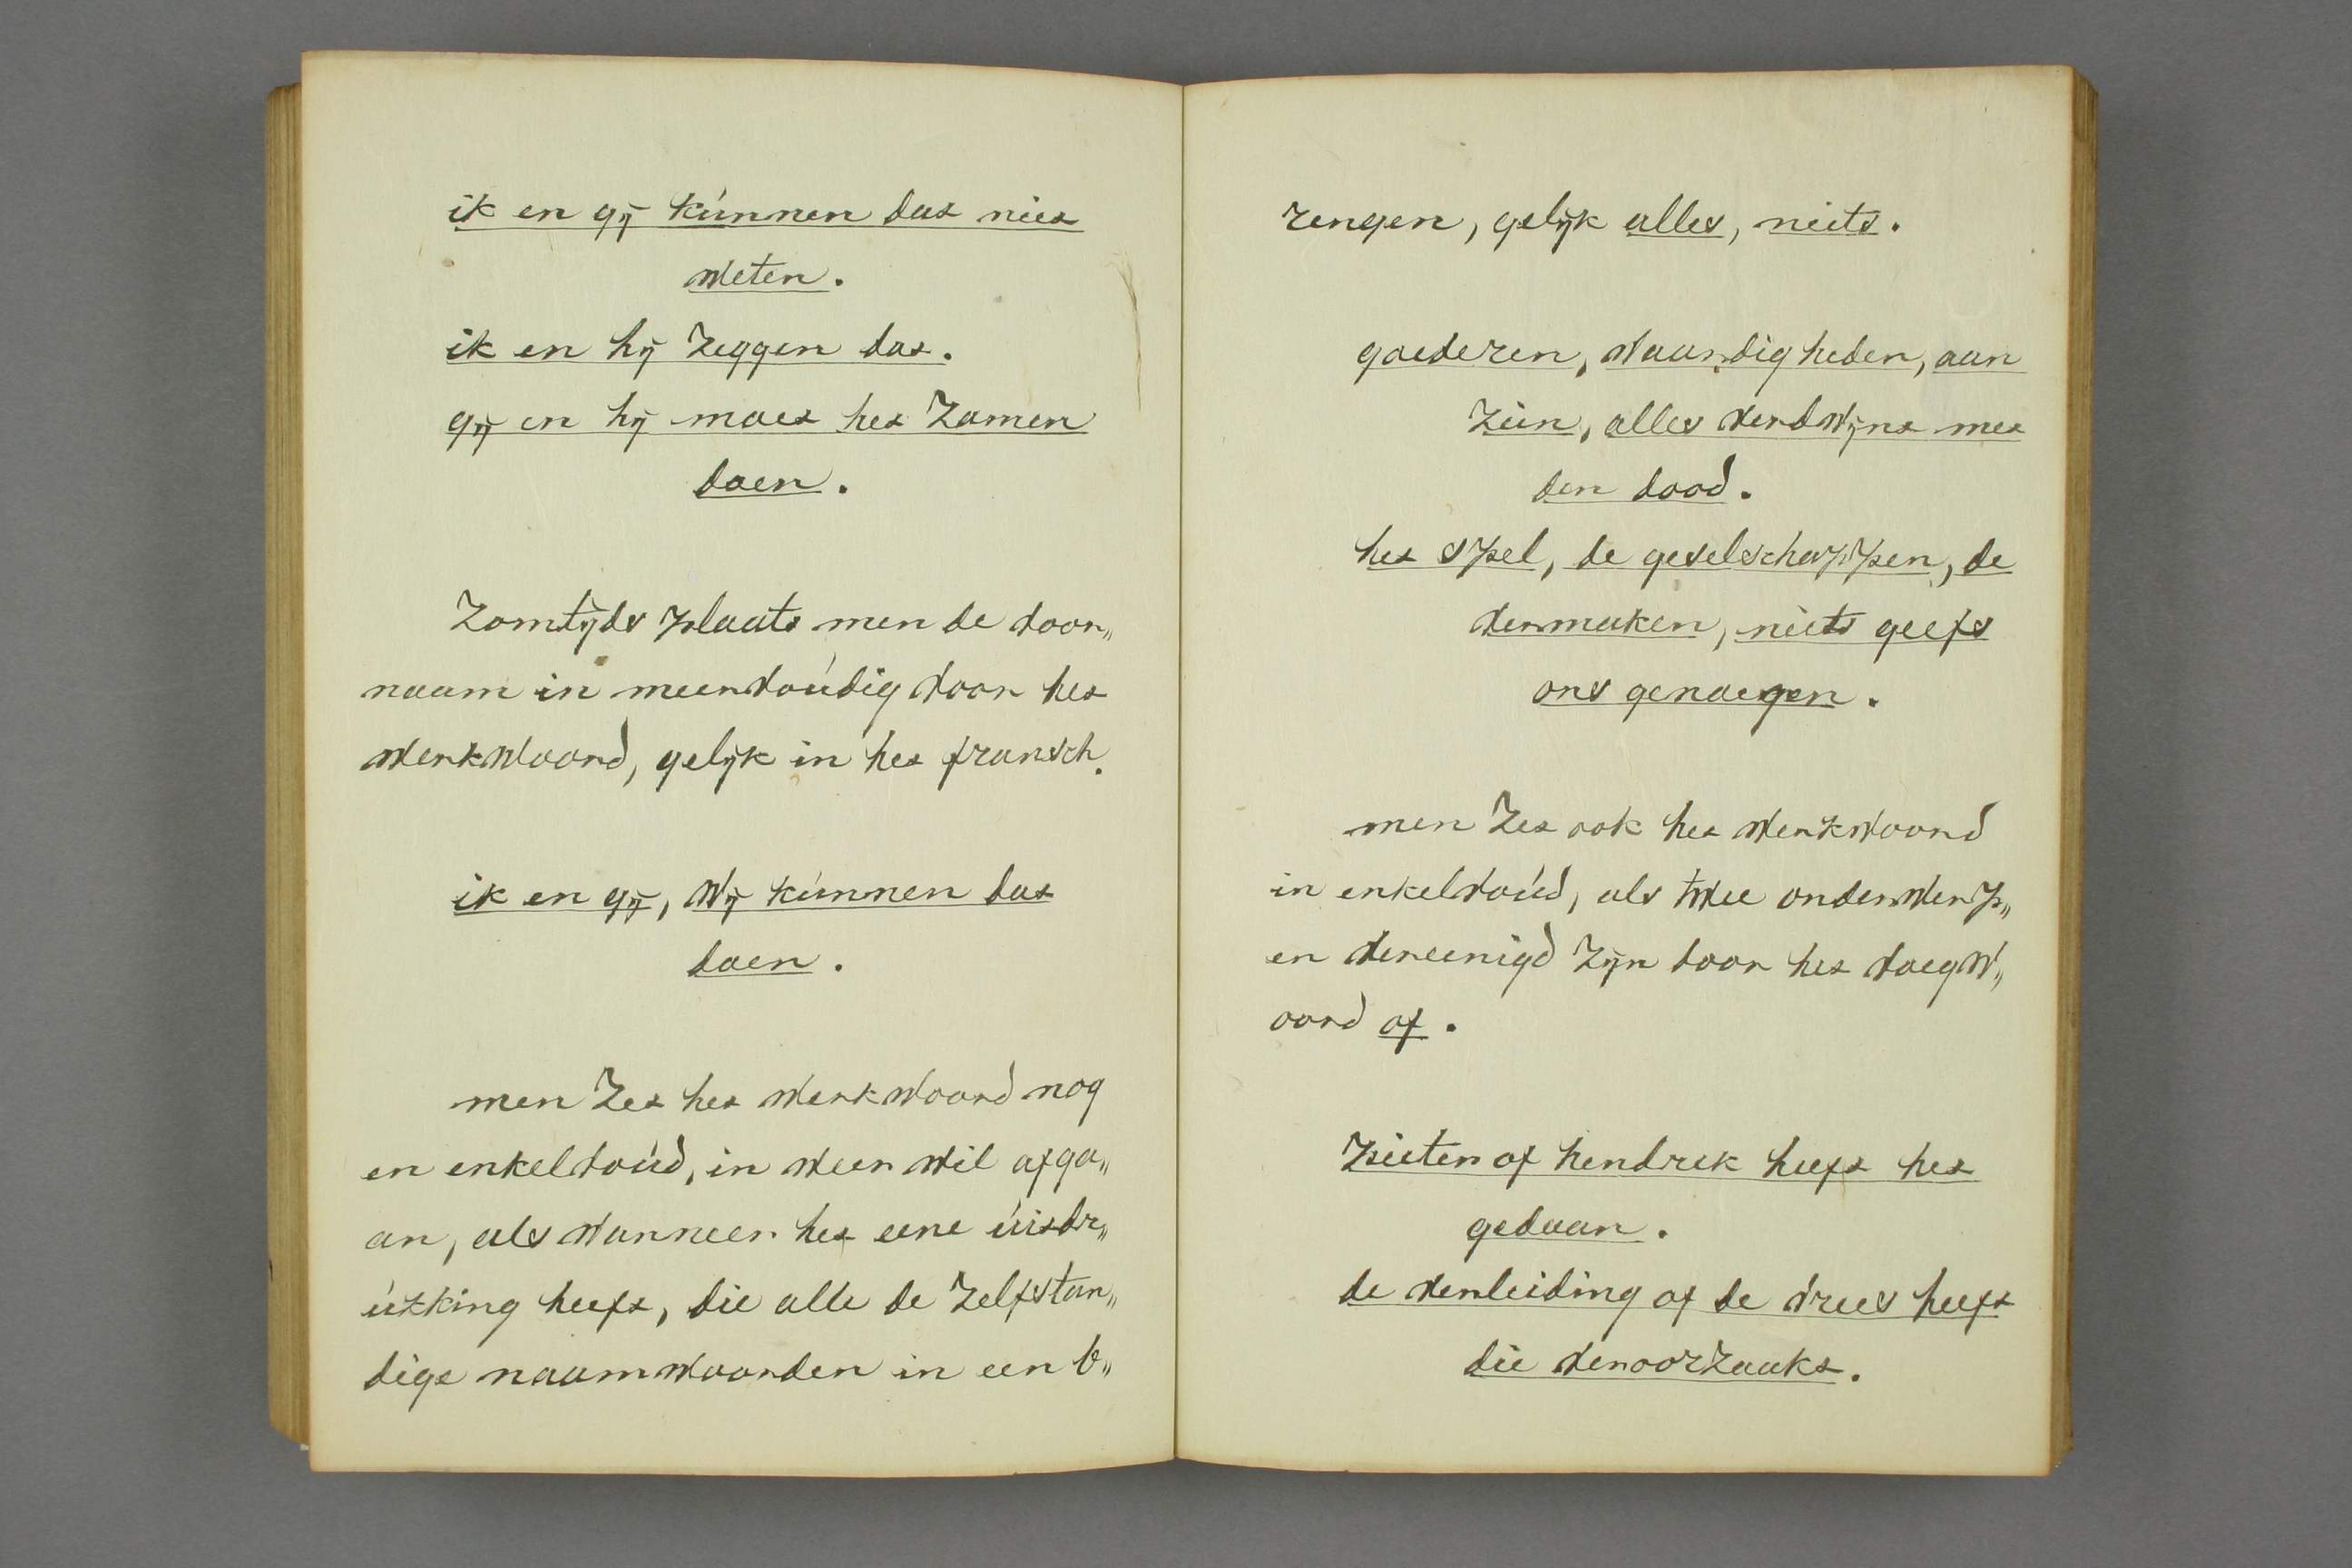 ik en gij kúnnen dat niet
weten.
ik en hij zeggen dat.
gij en hij moet het zamen
doen.
Zomtijds plaats men de voor„
naam in meervoúdig voor het
werkwoord, gelijk in het fransch.
ik en gij, wij kúnnen dat
doen.
men zet het werkwoord nog
en enkelvoúd, in weerwil afga„
an, als wanneer het eene úitdr„
úkking heeft, die alle de zelfstan„
dige naamwoorden in een b„
rengen, gelijk alles, niets.
goederen, waardigheden, aan
zien, alles verdwijnt met
den dood.
het spel, de geselschappen, de
vermaken, niets geeft
ons genoegen.
men zet ook het werkwoord
in enkelvoúd, als twee onderwerp„
en vereenigd zijn door het voegw„
oord of.
pieter of hendrik heeft het
gedaan.
de verleiding of de vrees heeft
die veroorzaakt.